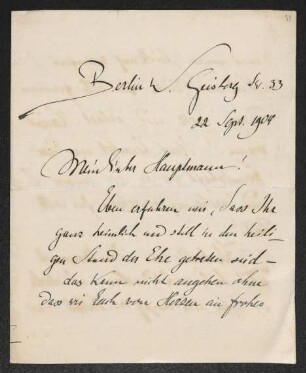 Berlin W. Geisberg Str. 33
22 Sept. 1904
Mein lieber Hauptmann!
Eben erfahren wir, dass Ihr
ganz heimlich und still in den heili-
gen Stand der Ehe getreten seid –
das kann nicht angehen ohne
dass wir Euch von Herzen ein frohes